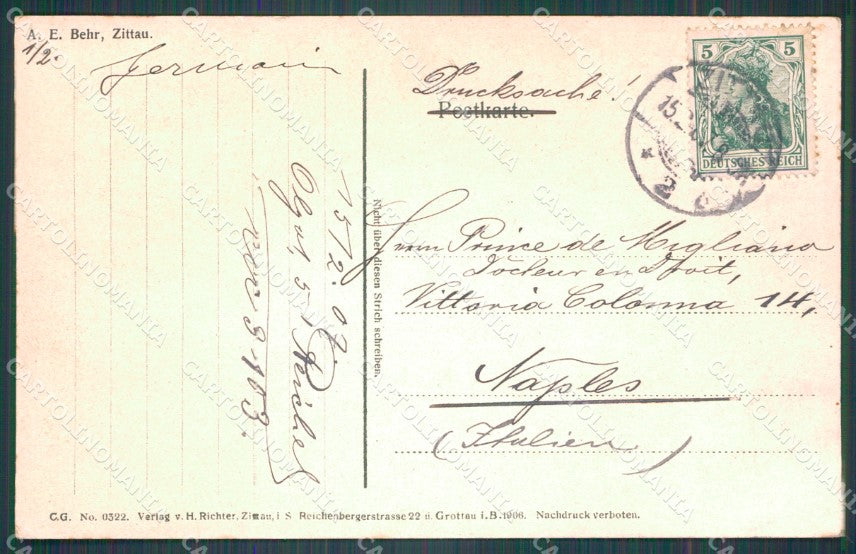 A. E. Behr, Zittau.
1/2.
Germain
Drucksache!
Postkarte.
5 5
DEUTSCHES REICH
15.2.
* 2
Herrn Prince de Migliano
Docteur en Droit,
Vittoria Colonna 14,
Naples
(Italien)
15/2. 07.
Reichel
Nicht über diesen Strich schreiben.
C.G. No. 0322. Verlag v. H. Richter, Zittau, i. S. Reichenbergerstrasse 22 u. Grottau i. B. 1906. Nachdruck verboten.
CARTOLINOMANIA